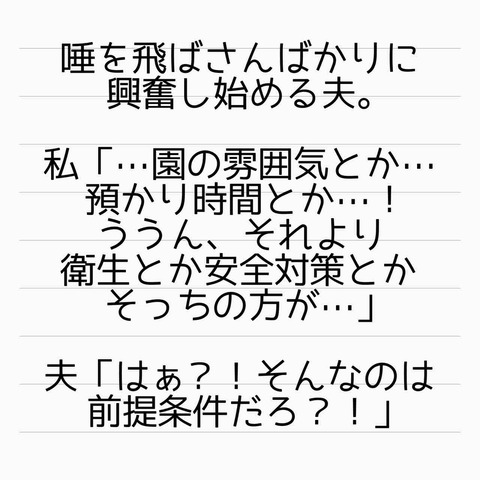 唾を飛ばさんばかりに
興奮し始める夫。
私「…園の雰囲気とか…
預かり時間とか…！
ううん、それより
衛生とか安全対策とか
そっちの方が…」
夫「はぁ？！そんなのは
前提条件だろ？！」